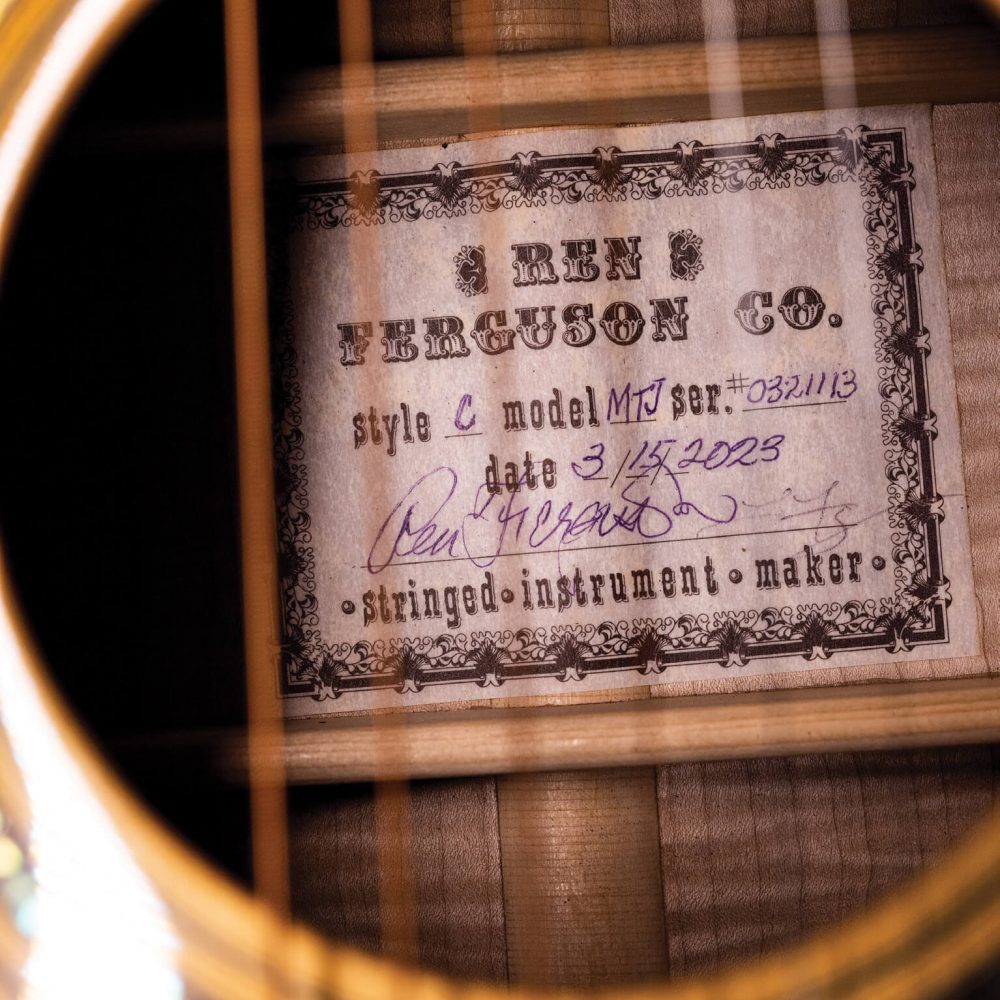 REN
FERGUSON CO.
style C model MTJ ser.# 0321113
date 3/15/2023
Ren Ferguson
•stringed•instrument•maker•